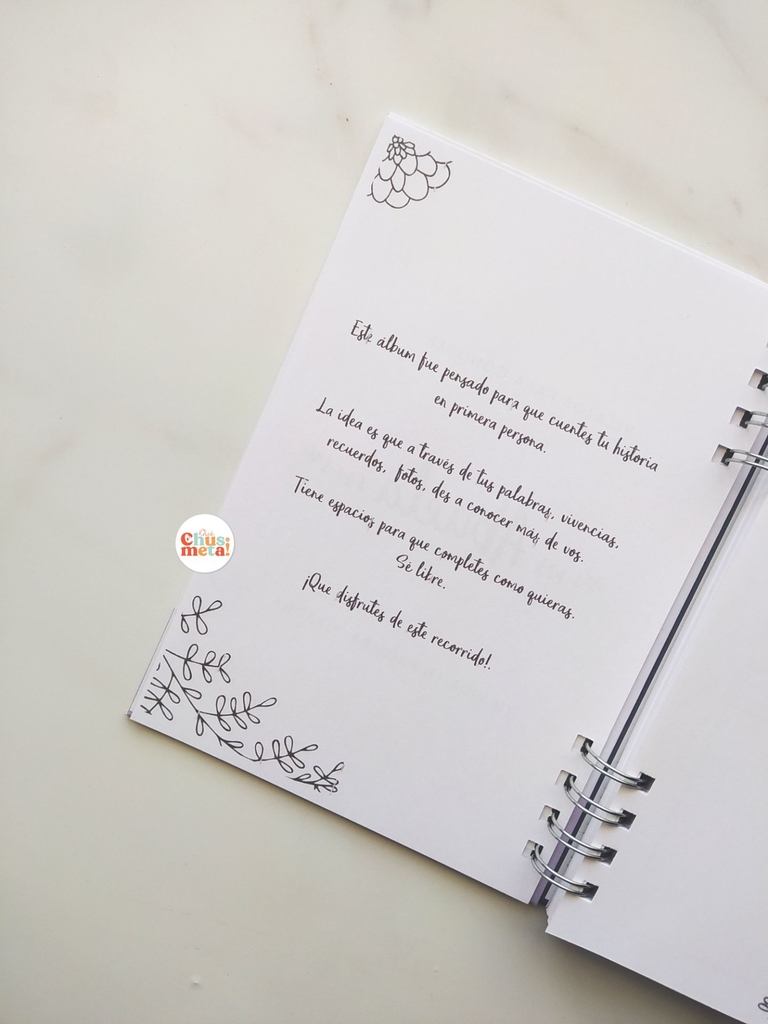 Este álbum fue pensado para que cuentes tu historia
en primera persona.
La idea es que a través de tus palabras, vivencias,
recuerdos, fotos, des a conocer más de vos.
Tiene espacios para que completes como quieras.
Sé libre.
¡Que disfrutes de este recorrido!.
Qué
Chus:
meta!